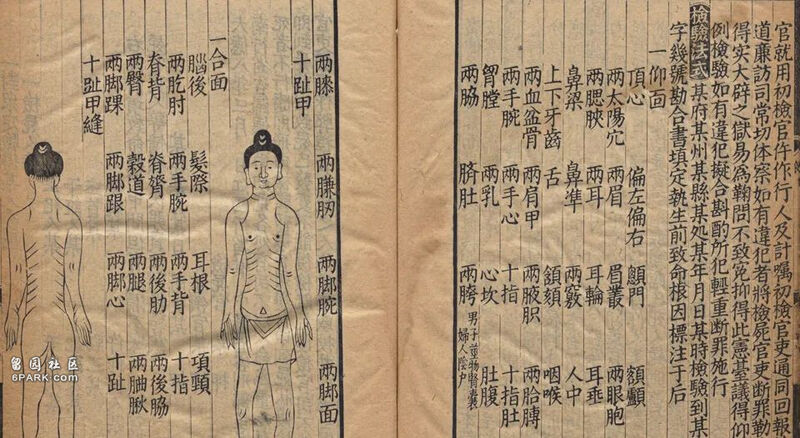 官就用初檢官仵作行人及計囑初檢官吏通同回報
道廉訪司常切体察如有違犯者將檢屍官吏斷罪勒
得实大辟之獄易為鞠問不致冤抑得此憲臺議得仰
例檢驗如有違犯擬合斟酌所犯輕重斷罪施行
檢驗法式 某府某州某縣某処某年月日某時檢驗到某
字幾號勘合書填定執生前致命根因標注于后
一仰面
頂心 偏左偏右 顖門 額顱
兩太陽穴 兩眉 眉叢 兩眼胞
兩腮脥 兩耳 耳輪 耳垂
鼻梁 鼻準 兩竅 人中
上下牙齒 舌 頷頦 咽喉
兩血盆骨 兩肩甲 兩腋胑 兩胳膊
兩手腕 兩手心 十指 十指肚
胷膛 兩乳 心坎 肚腹
兩脇 臍肚 兩胯 男子莖物腎囊 婦人陰户
兩膝 兩臁肕 兩脚腕 兩脚面
十趾甲
一合面
腦後 髮際 耳根 項頸
兩肐肘 兩手腕 兩手背 十指
脊背 脊膂 兩後肋 兩後脇
兩臀 穀道 兩腿
兩脚踝 兩脚跟 兩脚心 十趾
十趾甲縫
留园社区
6PARK.com